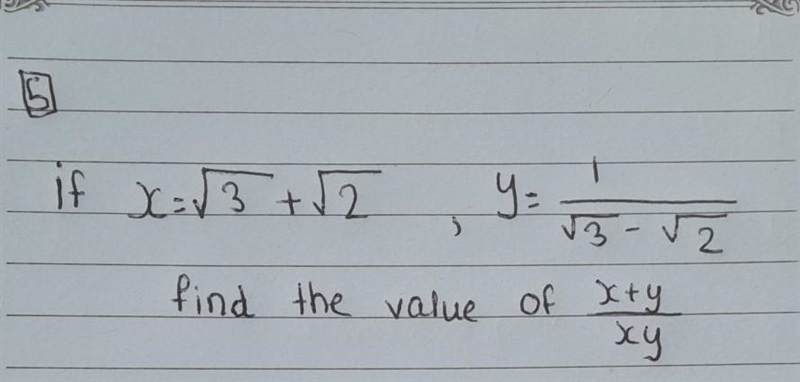 5
if x=√3 + √2 , y= 1/(√3 - √2)
find the value of (x+y)/(xy)